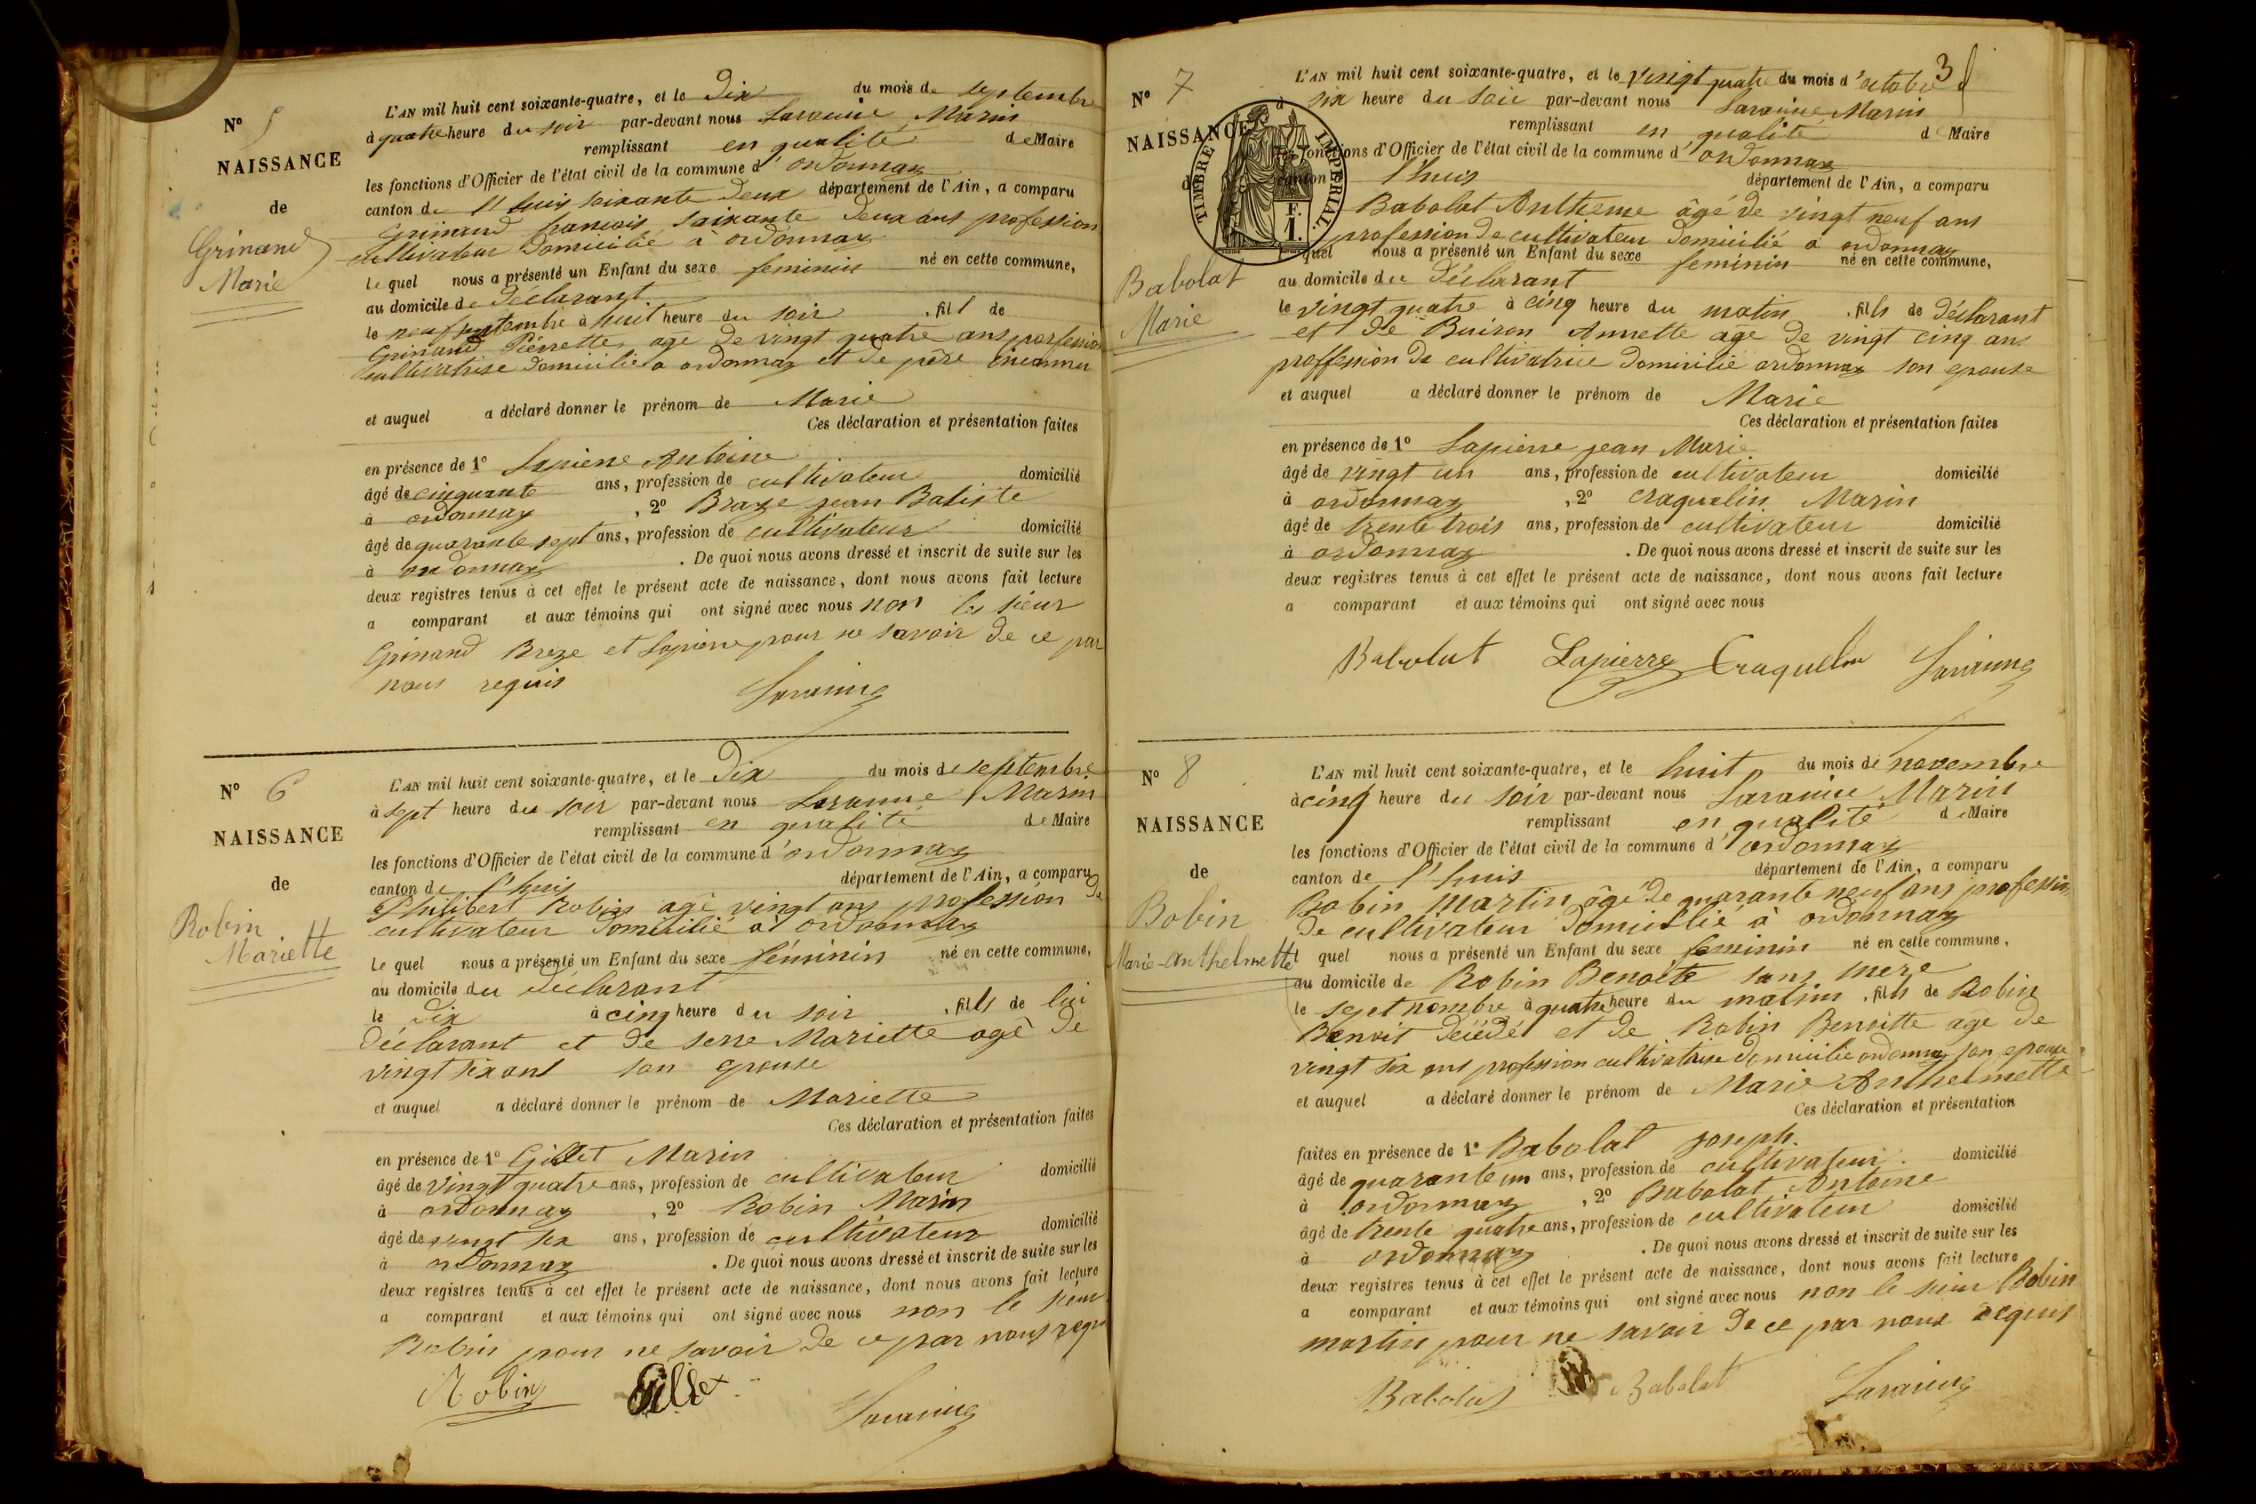 N° 5
NAISSANCE
de
Grinand
Marie
L'AN mil huit cent soixante-quatre, et le Dix du mois de septembre
à quatre heure du soir par-devant nous Laravine Marin
remplissant en qualité de Maire
les fonctions d'Officier de l'état civil de la commune d'ordonnaz
canton de l'huis soixante deux département de l'Ain, a comparu
Grinand francois soixante deux ans profession
cultivateur Domicilié a ordonnaz
Le quel nous a présenté un Enfant du sexe feminin né en cette commune,
au domicile de Déclarant
le neuf septembre à huit heure du soir , fil l de
Grinand Pierrette age de vingt quatre ans profession
cultivatrise Domicilié a ordonnaz et de père inconnu
et auquel a déclaré donner le prénom de Marie
Ces déclaration et présentation faites
en présence de 1° Lapierre Antoine
âgé de cinquante ans, profession de cultivateur domicilié
à ordonnaz , 2° Braze jean Batiste
âgé de quarante sept ans, profession de cultivateur domicilié
à ordonnaz . De quoi nous avons dressé et inscrit de suite sur les
deux registres tenus à cet effet le présent acte de naissance, dont nous avons fait lecture
a comparant et aux témoins qui ont signé avec nous non le sieur
Grinand Braze et Lapierre pour ne savoir de ce par
nous requis
Laravine
N° 6
NAISSANCE
de
Robin
Mariette
L'AN mil huit cent soixante-quatre, et le Dix du mois de septembre
à sept heure du soir par-devant nous Laravine Marin
remplissant en qualité de Maire
les fonctions d'Officier de l'état civil de la commune d'ordonnaz
canton de l'huis département de l'Ain, a comparu
Philibert Robin age vingt ans profession de
cultivateur Domicilié a ordonnaz
Le quel nous a présenté un Enfant du sexe féminin né en cette commune,
au domicile du déclarant
le dix à cinq heure du soir , fil ls de lui
Déclarant et de serre Mariette agé de
vingt six ans son epouse
et auquel a déclaré donner le prénom de Mariette
Ces déclaration et présentation faites
en présence de 1° Gillet Marin
âgé de vingt quatre ans, profession de cultivateur domicilié
à ordonnaz , 2° Robin Marin
âgé de vingt six ans, profession de cultivateur domicilié
à ordonnaz . De quoi nous avons dressé et inscrit de suite sur les
deux registres tenus à cet effet le présent acte de naissance, dont nous avons fait lecture
a comparant et aux témoins qui ont signé avec nous non le sieur
Robin pour ne savoir de ce par nous requi
Robin Gillet
Laravine
3
N° 7
NAISSANCE
d
TIMBRE IMPERIAL.
F.
1.
Babolat
Marie
L'AN mil huit cent soixante-quatre, et le vingt quatre du mois d'octobre
à six heure du soir par-devant nous Laravine Marin
remplissant en qualité d Maire
les fonctions d'Officier de l'état civil de la commune d'ordonnaz
canton l'huis département de l'Ain, a comparu
Babolat Antheme âgé de vingt neuf ans
profession de cultivateur domicilié a ordonnaz
quel nous a présenté un Enfant du sexe feminin né en cette commune,
au domicile du Déclarant
le vingt quatre à cinq heure du matin , fil ls de déclarant
et de Buiron Annette age de vingt cinq ans
proffession de cultivatrice domicilié ordonnaz son epouse
et auquel a déclaré donner le prénom de Marie
Ces déclaration et présentation faites
en présence de 1° Lapierre jean Marie
âgé de vingt un ans, profession de cultivateur domicilié
à ordonnaz , 2° craquelin Marin
âgé de trente trois ans, profession de cultivateur domicilié
à ordonnaz . De quoi nous avons dressé et inscrit de suite sur les
deux registres tenus à cet effet le présent acte de naissance, dont nous avons fait lecture
a comparant et aux témoins qui ont signé avec nous
Babolat Lapierre Craquelin Laravine
N° 8
NAISSANCE
de
Robin
Marie-Anthelmette
L'AN mil huit cent soixante-quatre, et le huit du mois de novembre
à cinq heure du soir par-devant nous Laravine Marin
remplissant en qualité de Maire
les fonctions d'Officier de l'état civil de la commune d'ordonnaz
canton de l'huis département de l'Ain, a comparu
Robin Martin âgé de quarante neuf ans profession
de cultivateur Domicilié à ordonnaz
l quel nous a présenté un Enfant du sexe féminin né en cette commune,
au domicile de Robin Benoite sans mère
le sept nombre à quatre heure du matin , fil ls de Robin
Benoit décédé et de Robin Benoitte age de
vingt six ans profession cultivatrise domicilié ordonnaz son epouse
et auquel a déclaré donner le prénom de Marie Anthelmette
Ces déclaration et présentation
faites en présence de 1° Babolat joseph
âgé de quarante un ans, profession de cultivateur domicilié
à ordonnaz , 2° Babolat Antoine
âgé de trente quatre ans, profession de cultivateur domicilié
à ordonnaz . De quoi nous avons dressé et inscrit de suite sur les
deux registres tenus à cet effet le présent acte de naissance, dont nous avons fait lecture
a comparant et aux témoins qui ont signé avec nous non le sieur Robin
martin pour ne savoir de ce par nous requis
Babolat Babolat Laravine